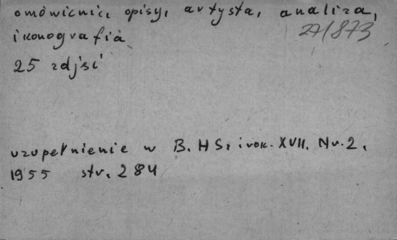 omówienie, opisy, artysta, analiza,
ikonografia 27/873
25 zdjęć
uzupełnienie w B. HS. rok. XVII. Nr. 2.
1955 str. 284